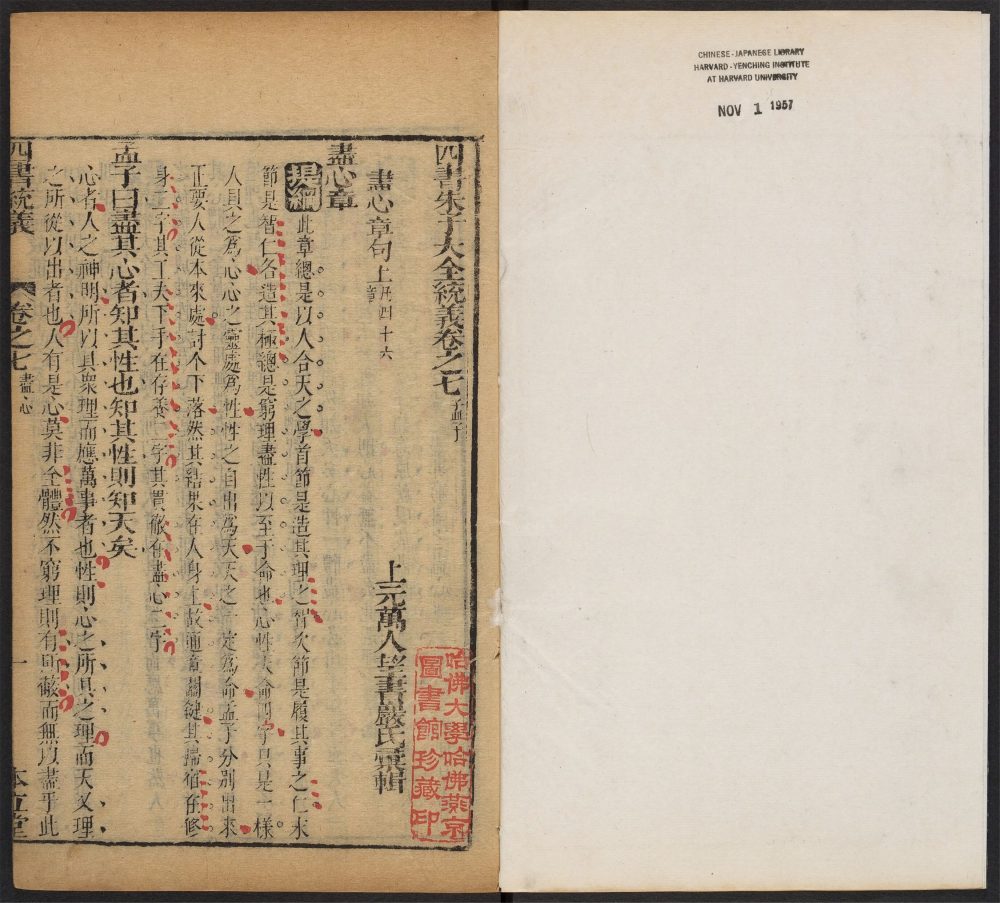 CHINESE-JAPANESE LIBRARY
HARVARD-YENCHING INSTITUTE
AT HARVARD UNIVERSITY
NOV 1 1957
四書朱子大全統義卷之七 孟子
上元萬人望書巖氏彙輯
哈佛大學哈佛燕京
圖書館珍藏印
盡心章句上 凡四十六章
盡心章
提綱 此章總是以人合天之學首節是造其理之智次節是履其事之仁末
節是智仁各造其極總是窮理盡性以至于命也心性天命四字只是一樣
人具之為心心之靈處為性性之自出為天天之一定為命孟子分別出來
正要人從本來處討个下落然其結果在人身上故通章關鍵其歸宿在修
身二字其工夫下手在存養二字其貫徹在盡心二字
孟子曰盡其心者知其性也知其性則知天矣
心者人之神明所以具衆理而應萬事者也性則心之所具之理而天又理
之所從以出者也人有是心莫非全體然不窮理則有所蔽而無以盡乎此
四書統義
卷之七 盡心
一
本立堂